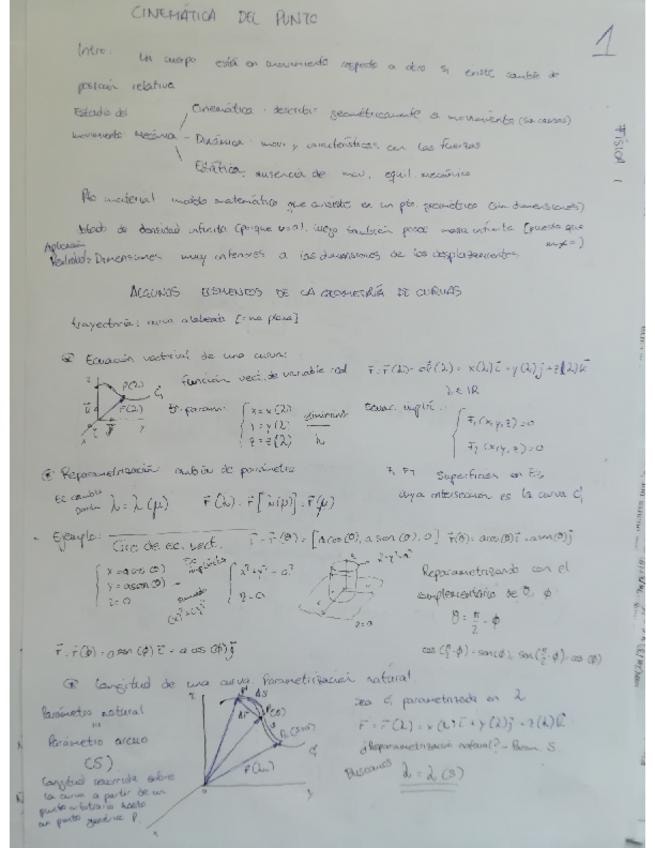 CINEMÁTICA DEL PUNTO
1
FÍSICA I
Intro: Un cuerpo está en movimiento respecto a otro si existe cambio de
posición relativa
Estudio del
movimiento Mecánica
Cinemática: describir geométricamente el movimiento (sin causas)
Dinámica: mov. y características con las fuerzas
Estática: ausencia de mov., equil. mecánico
Pto material modelo matemático que consiste en un pto. geométrico (sin dimensiones)
dotado de densidad infinita (porque v=0), luego también posee masa infinita (puesto que
Aplicación
Realidad: Dimensiones muy inferiores a las dimensiones de los desplazamientos
ALGUNOS ELEMENTOS DE LA GEOMETRÍA DE CURVAS
trayectoria: curva alabeada [= no plana]
Ecuación vectorial de una curva:
Función vect. de variable real r = r(λ) = x(λ)i + y(λ)j + z(λ)k
λ ∈ ℝ
P(λ)
r(λ)
Ec. param: x = x(λ)
y = y(λ)
z = z(λ)
eliminando
λ
Ecuac. implíc.:
F₁(x,y,z)=0
F₂(x,y,z)=0
F₁ F₂ Superficies en E₃,
cuya intersección es la curva C
Reparametrización cambio de parámetro
Ec. cambio
λ = λ(μ) r(λ) = r[λ(μ)] = r(μ)
Ejemplo:
Circ de ec. vect. r = r(θ) = [a cos(θ), a sen(θ), 0] r(θ) = a cos(θ)i + a sen(θ)j
x = a cos(θ)
y = a sen(θ)
z = 0
x² + y² = a²
z = 0
Reparametrizando con el
complementario de θ, φ
θ = π/2 - φ
r = r(φ) = a sen(φ)i + a cos(φ)j
cos(π/2-φ) = sen(φ), sen(π/2-φ) = cos(φ)
Longitud de una curva. Parametrización natural
Parámetro natural
=
Parámetro arco
(S)
Longitud recorrida sobre
la curva a partir de un
punto arbitrario hasta
un punto genérico P.
ΔS
Δr
Sea C, parametrizada en λ
r = r(λ) = x(λ)i + y(λ)j + z(λ)k
¿Reparametrización natural? - Param. S.
Buscamos λ = λ(S)